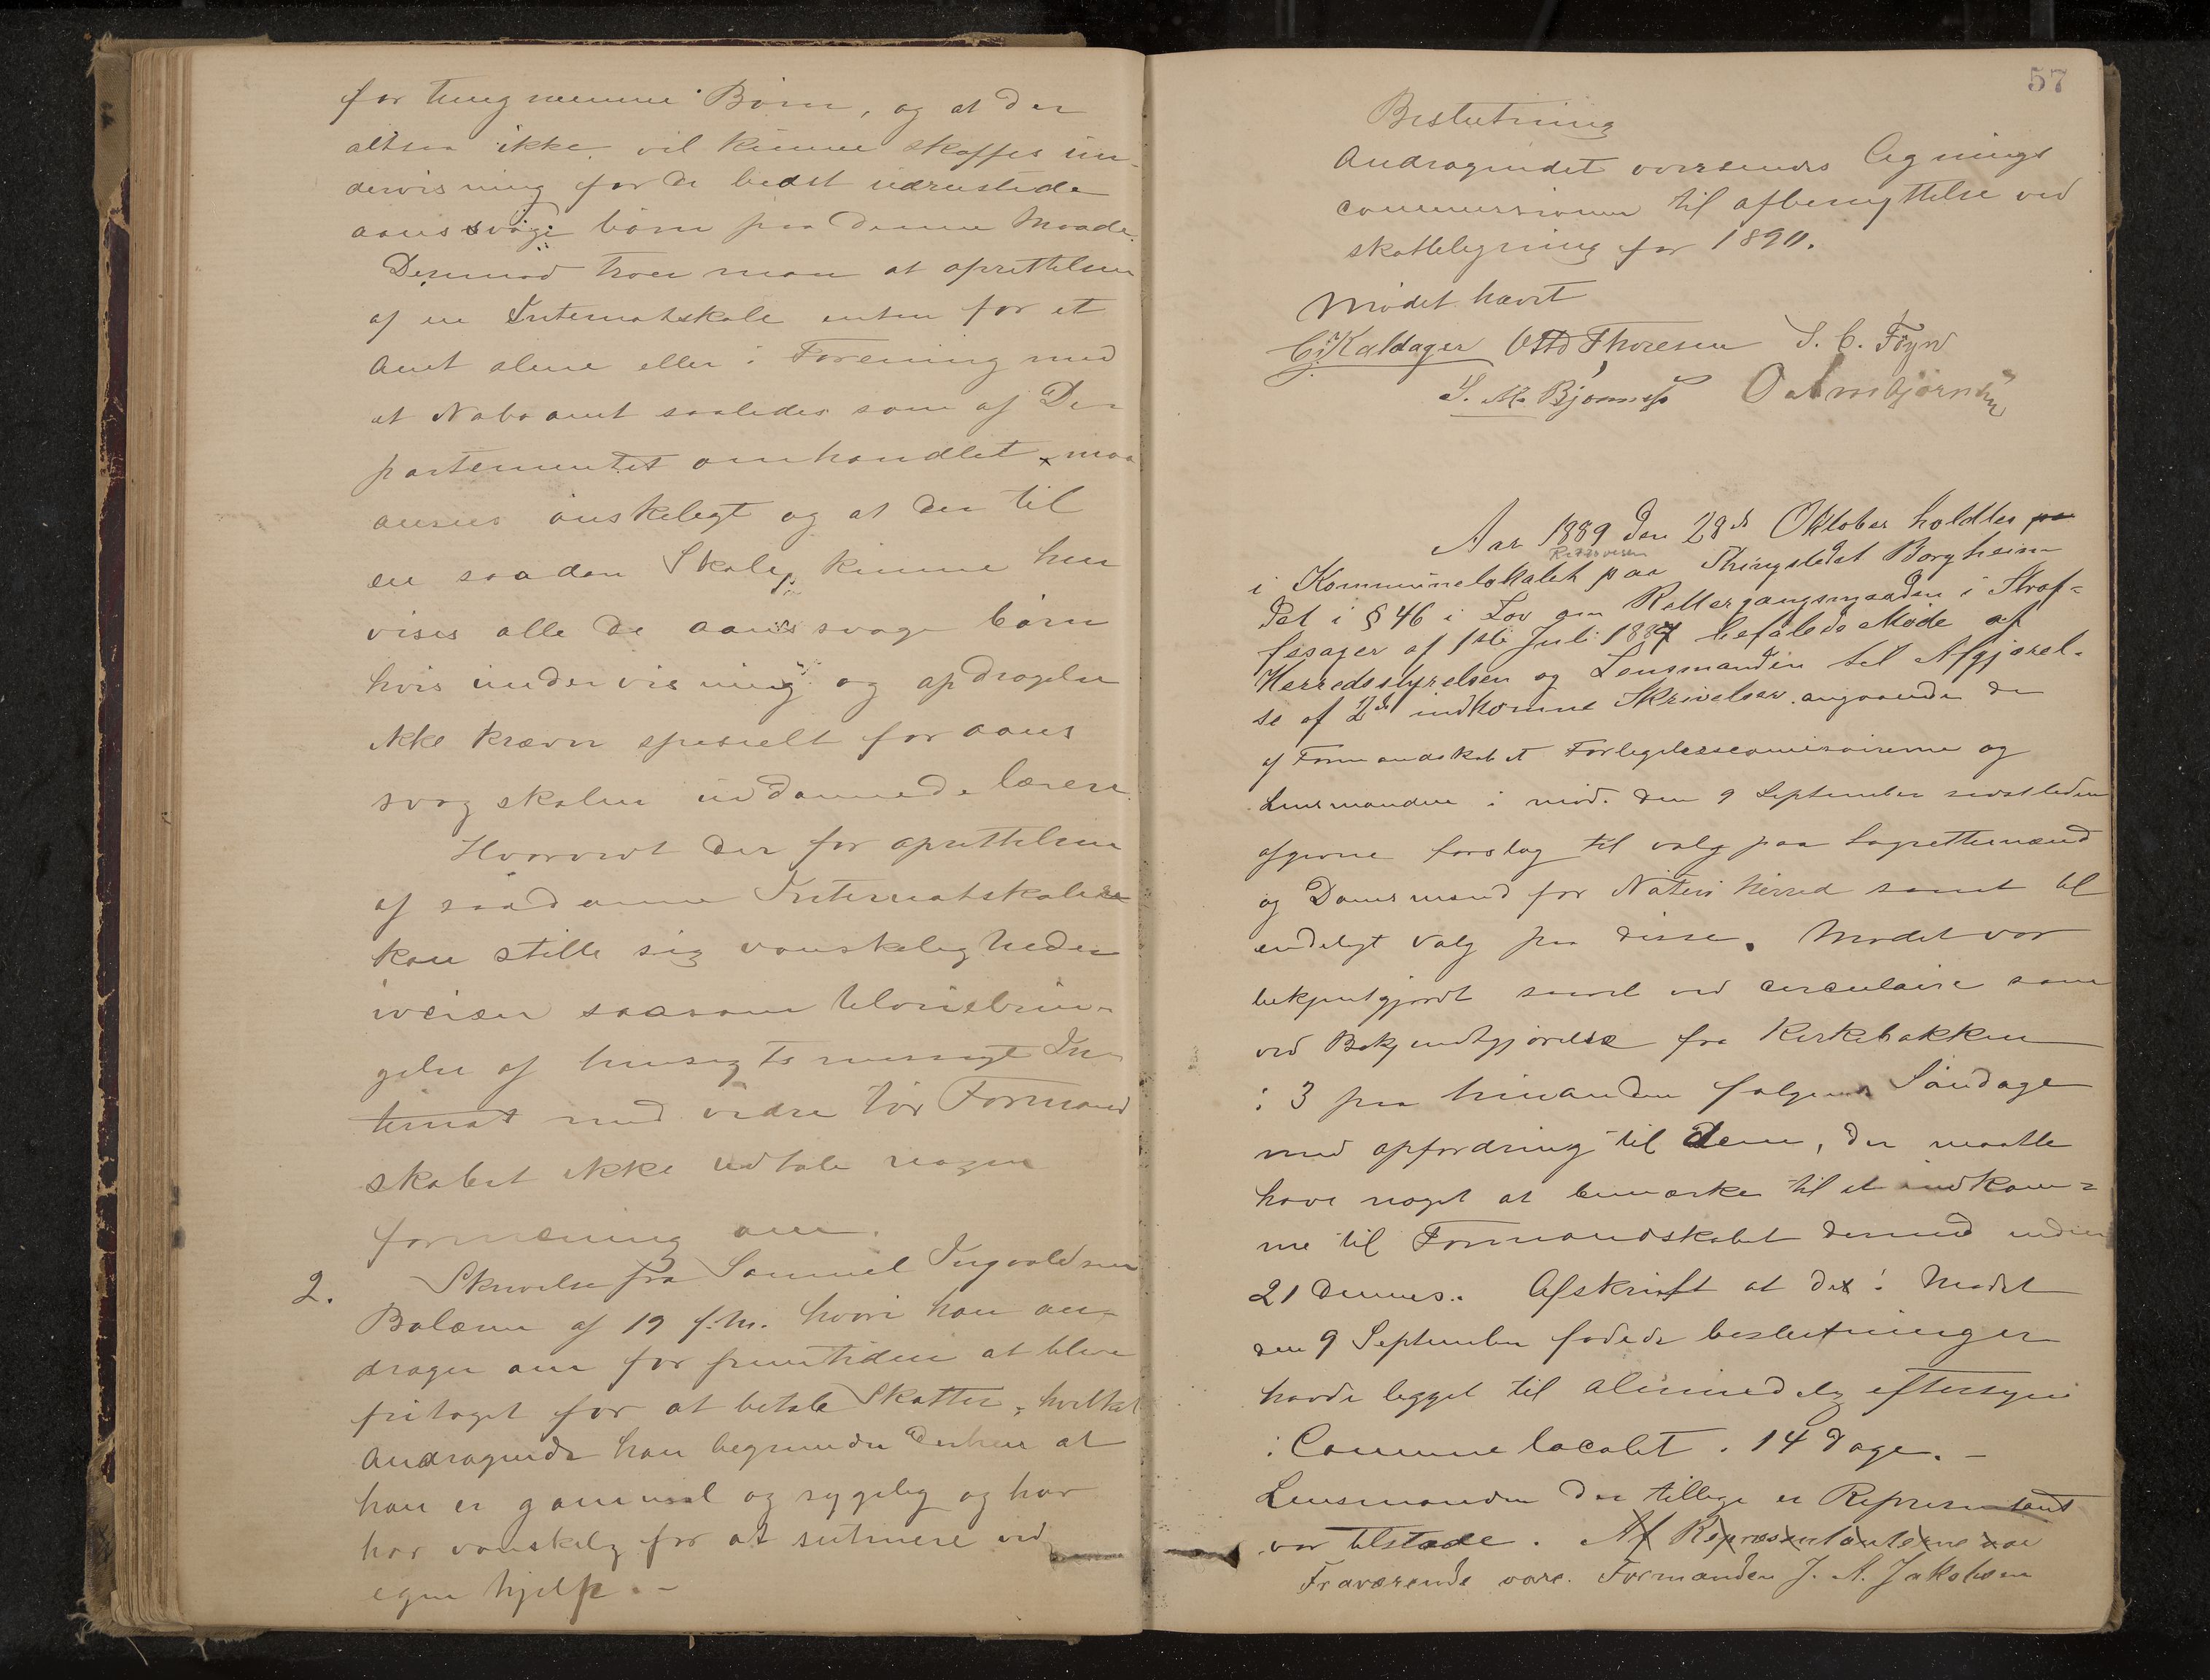 for tungnemme Børn, og at der
altsaa ikke vil kunne skaffes un-
dervisning for de bedst udrustede
aanssvage børn paa denne Maade.
Derimod troer man at oprettelsen
af en Internatskole enten for et
Amt alene eller i Forening med
et Naboamt saaledes som af De-
partementet omhandlet maa
ansees ønskeligt og at der til
en saadan Skole kunne hen
vises alle de aanssvage børn
hvis undervisning og opdragelse
ikke kræver specielt for aans
svag skolen uddannede lærere.
Hvorvidt der for oprettelsen
af saadanne Internatskoler
kan stille sig vanskeligheder
iveien saasom tilveiebrin-
gelse af hensigtsmæssigt In-
ternat med videre tør Formand
skabet ikke udtale nogen
formening om.
2. Skrivelse fra Samuel Ingvaldsen
Bolærne af 19 f.m. hvori han an-
drager om for fremtiden at blive
fritaget for at betale Skatter, hvilket
Andragende han begrunder derhen at
han er gammel og sygelig og har
har vanskelig for at subsistere ved
egen hjelp.-
57
Beslutning
Andragendet oversendes Lignings
commissionen til afbenyttelse ved
skatteligning for 1890.
Mødet hævet
C. Kaldager Otto Thoresen S. C. Føyn
S. M. Bjønness O Ambjørnsen
Aar 1889 den 28de Oktober holdtes pa
i Kommunelokalet paa Thingstedet Borgheim
det i § 46 i Lov om Rettergangsmaaden i Straf-
fesager af 1ste Juli 1887 befalede Møde af
Herredsstyrelsen og Lensmanden til Afgjørel-
se af 2de indkomne Skrivelser angaaende de
af Formandskabet Forligelsescomisairerne og
Lensmanden i mød. den 9 September sidstleden
afgivne forslag til valg paa Lagrettemænd
og Domsmænd for Nøterø herred samt til
endeligt valg paa disse. Mødet var
bekjentgjordt saavel ved circulaire som
ved Bekjendtgjørelse fra Kirkebakken
i 3 paa hinanden følgende Søndage
med opfordring til dem, der maatte
have noget at bemærke til at indkom-
me til Formandskabet dermed inden
21 dennes. Afskrift at det i Mødet
den 9 September fadede beslutninger
havde ligget til alimindelig eftersyn
i Communelocalet i 14 dage. -
Lensmanden der tillige er Representant
var tilstæde. Af Repræsentanterne var
Fraværende vare. Formanden J. A. Jakobsen